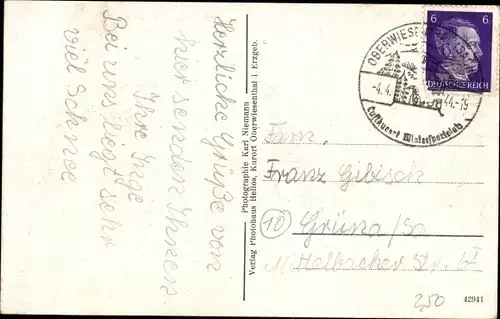 Herzliche Grüße von
hier senden Ihnen.
Ihre Inge
Bei uns liegt sehr
viel Schnee
Photographie Karl Niemann
Verlag Photohaus Helios, Kurort Oberwiesenthal i. Erzgeb.
OBERWIESEN
-4.4.
44.-15
Luftkurort Wintersportplatz
6 6
DEUTSCHES REICH
Fam.
Franz Gibisch
(10) Grüna/Sa
Mittelbacher Str.
42941
2,50